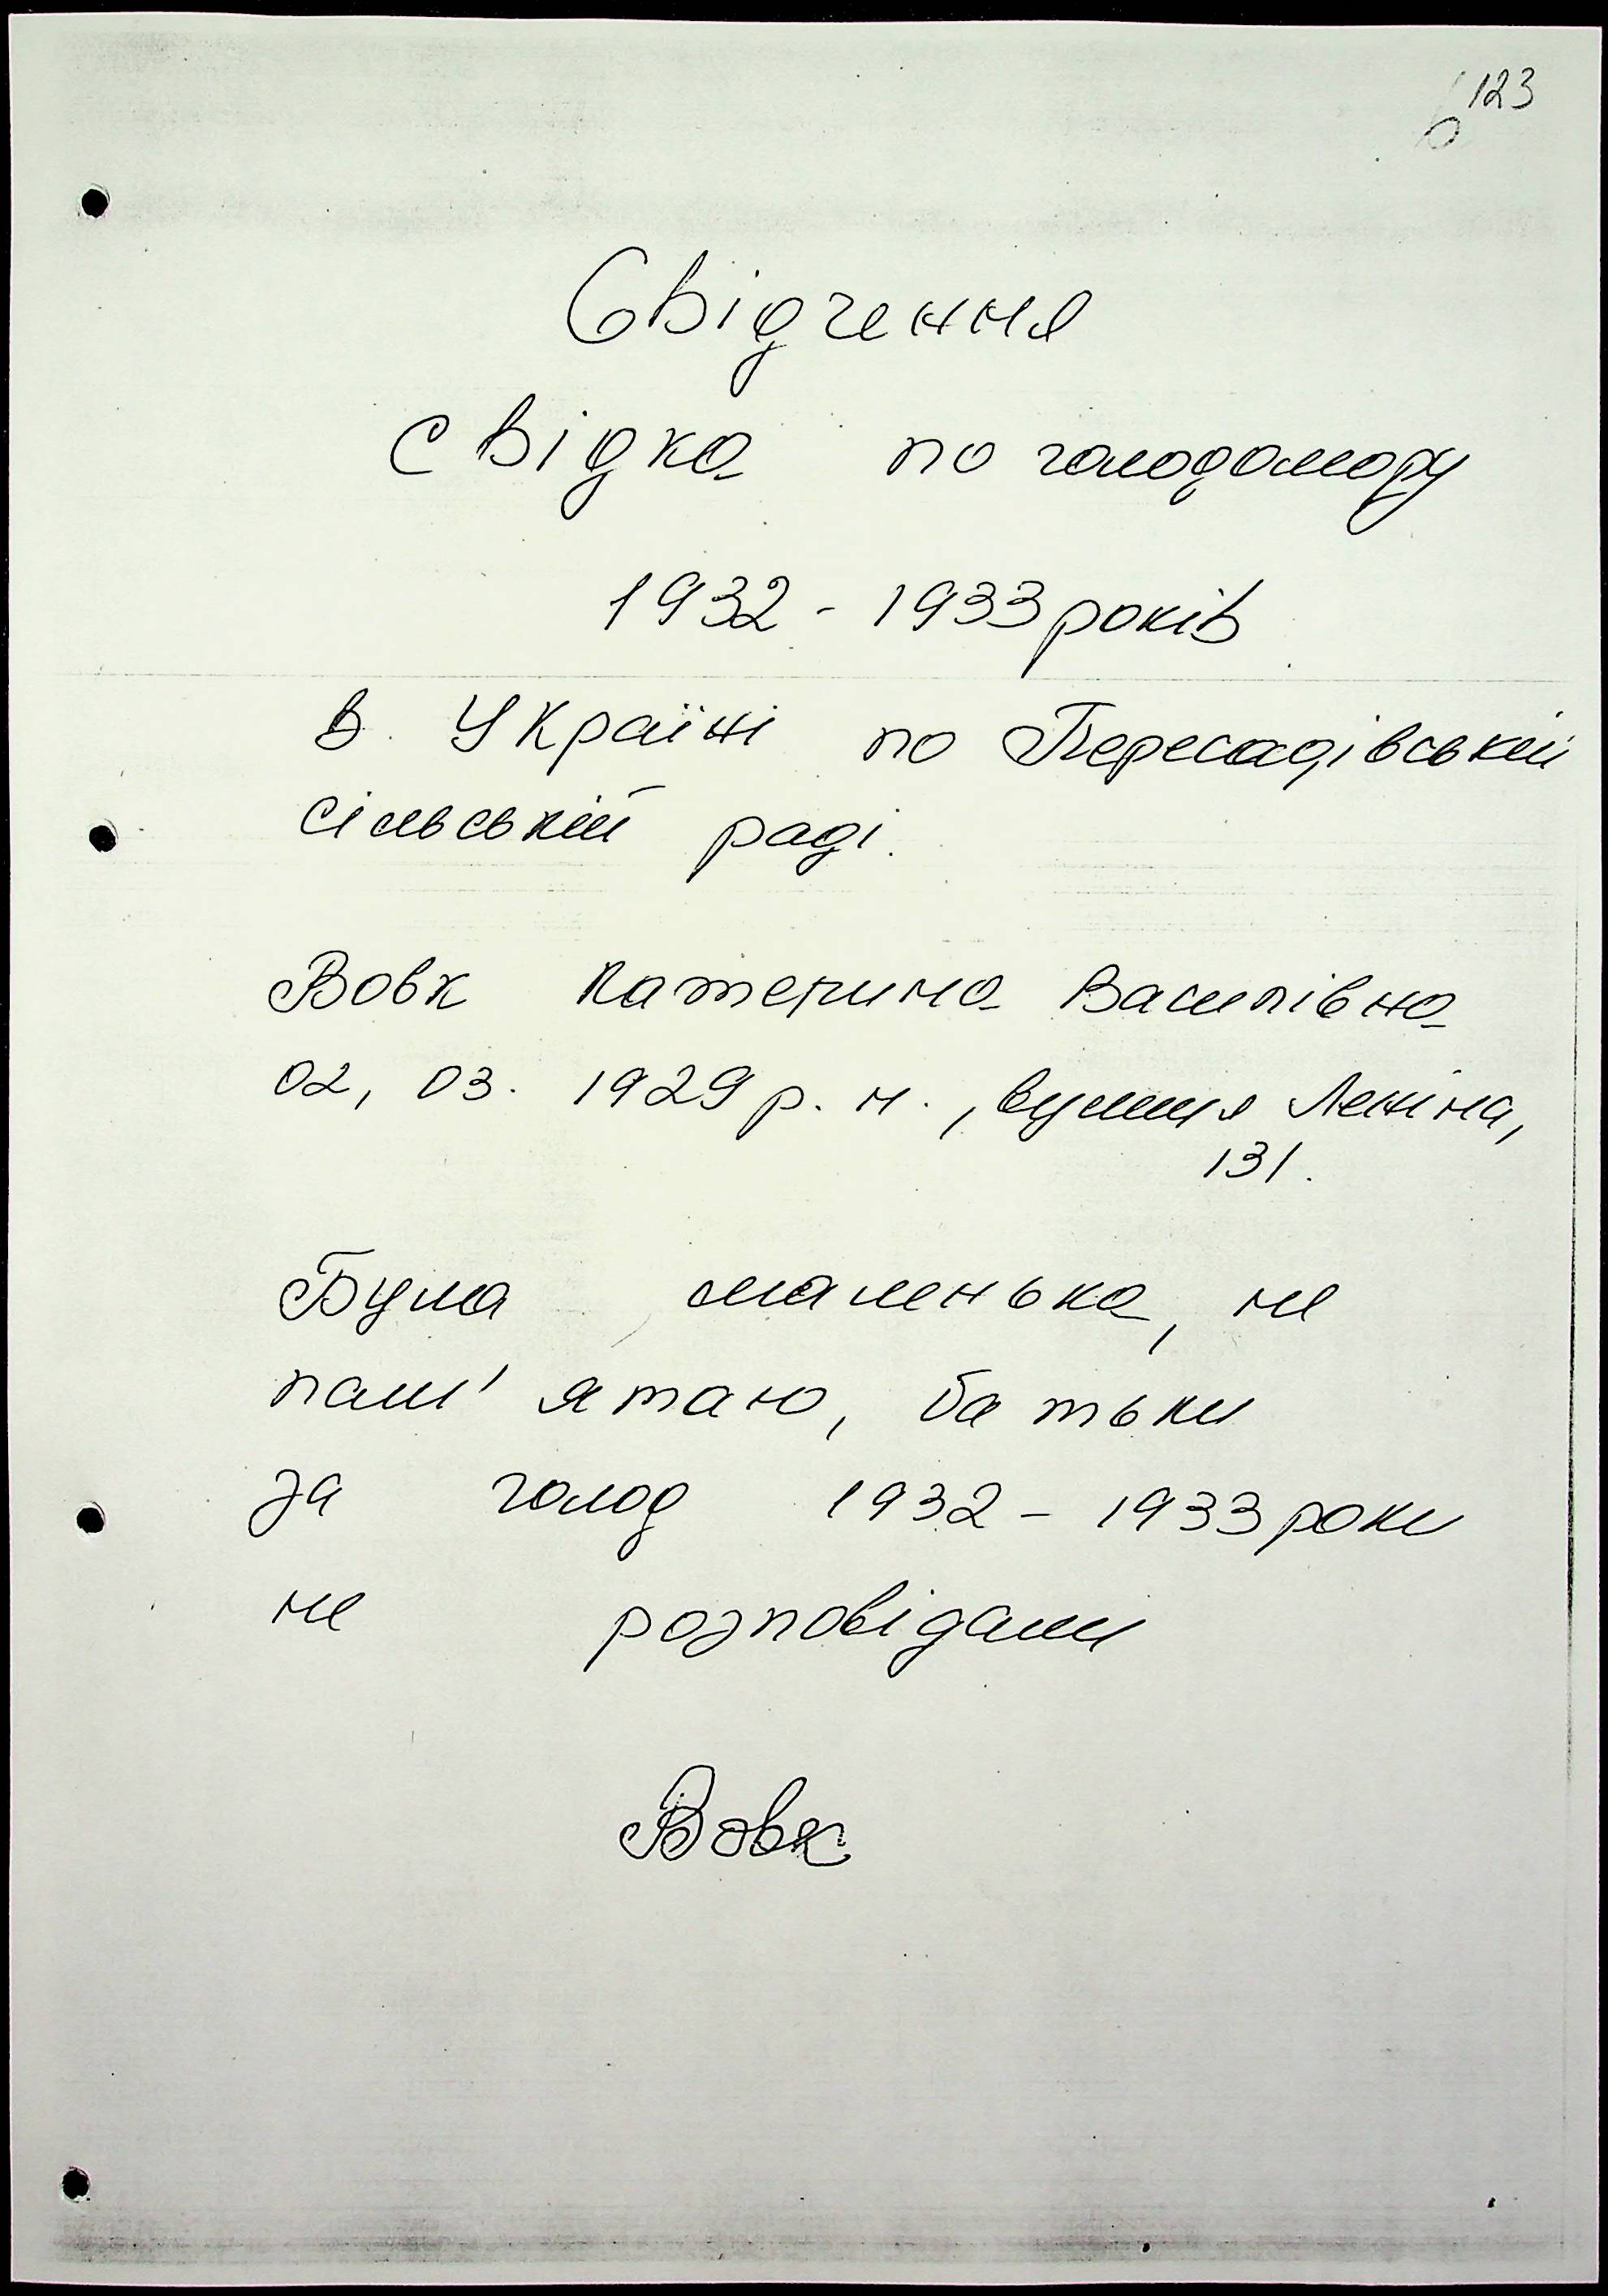 123
Свідчення
свідка по голодомору
1932 - 1933 років
в Україні по Пересадівській
сільській раді.
Вовк Катерина Василівна
02, 03. 1929 р. н., вулиця Леніна,
131.
Була маленька, не
пам'ятаю, батьки
за голод 1932 - 1933 роки
не розповідали
Вовк